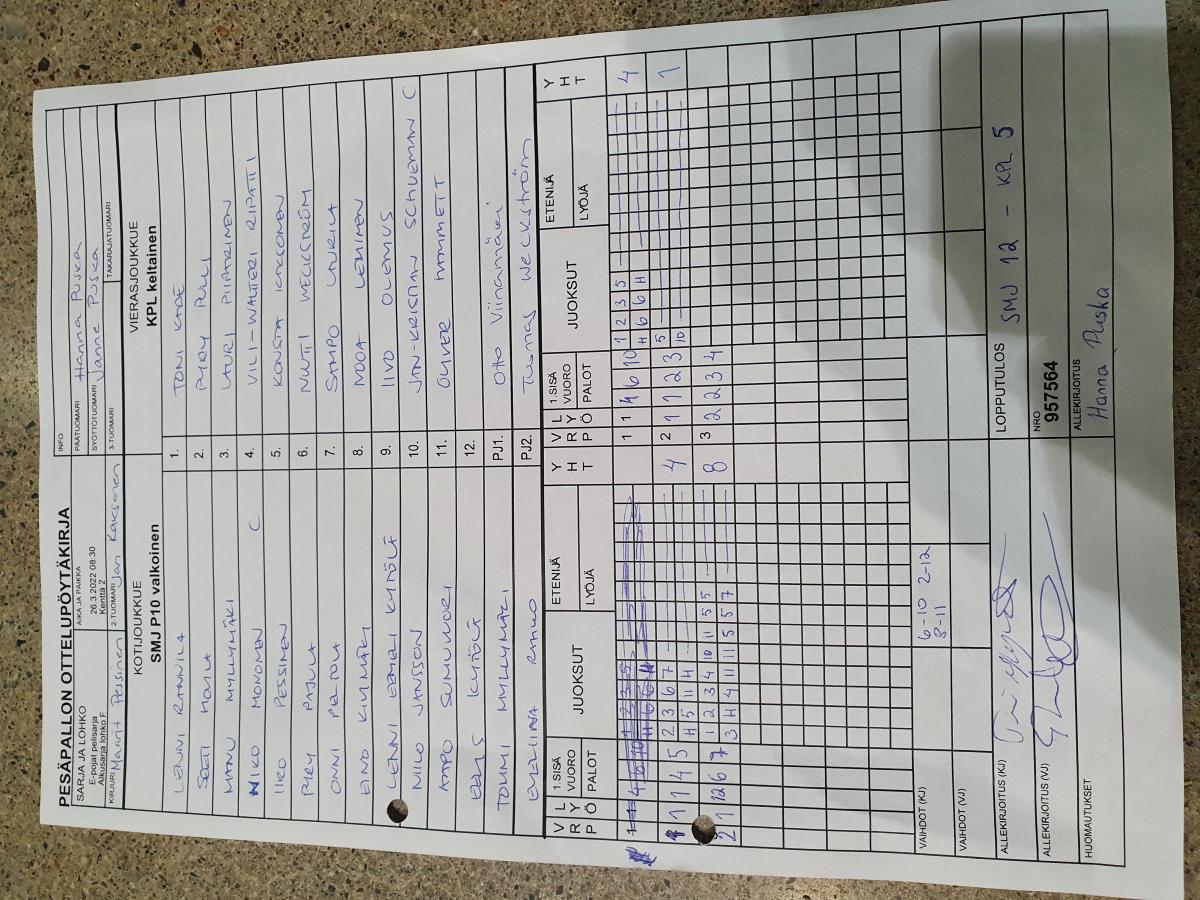 PESÄPALLON OTTELUPÖYTÄKIRJA
SARJA JA LOHKO
E-pojat pelisarja
Alkusarja lohko F
AIKA JA PAIKKA
26.3.2022 08:30
Kenttä 2
INFO
PÄÄTUOMARI Hanna Puska
SYÖTTÖTUOMARI Janne Puska
KIRJURI Maarit Pessinen
2-TUOMARI Jari Kaksonen
3-TUOMARI
TAKARAJATUOMARI
KOTIJOUKKUE
SMJ P10 valkoinen
VIERASJOUKKUE
KPL keltainen
LENNI RANNILA 1. TONI KADE
2. PYRY PULLI
MANU MYLLYMÄKI 3. LAURI PIIPARINEN
NIKO MONONEN C 4. VILI-WALTTERI RIPATTI
IIRO PESSINEN 5. KONSTA
PYRY PAJULA 6. WECKSTRÖM
ONNI PELTOLA 7. SAMPO LAURILA
EINO KIVIMÄKI 8. NOOA LEHINEN
LENNI EEMELI KYTÖLÄ 9. IIVO OLEMUS
NIILO JANSSON 10. JAN-KRISTIAN SCHUEMAN C
AAPO SUMUVUORI 11. OLIVER HAMMETT
EELIS KYTÖLÄ 12.
TOUMI MYLLYMÄKI PJ1. Otto Viinamäki
EVELIINA PJ2. Tuomas Weckström
V R P L Y Ö 1.SISÄ VUORO PALOT JUOKSUT ETENIJÄ LYÖJÄ Y H T
V R P L Y Ö 1.SISÄ VUORO PALOT JUOKSUT ETENIJÄ LYÖJÄ Y H T
1 1 4 6 10 1 2 3 5 4
H 6 6 H
1 1 4 5 2 3 6 7 4
H 5 11 H
2 1 1 2 3 5 1
10
2 1 12 6 7 1 2 3 4 10 11 5 5 8
3 H 4 11 11 5 5 7
3 2 2 3 4
VAIHDOT (KJ) 6-10 2-12
8-11
VAIHDOT (VJ)
ALLEKIRJOITUS (KJ)
LOPPUTULOS SMJ 12 - KPL 5
ALLEKIRJOITUS (VJ)
NRO
957564
HUOMAUTUKSET
ALLEKIRJOITUS
Hanna Puska